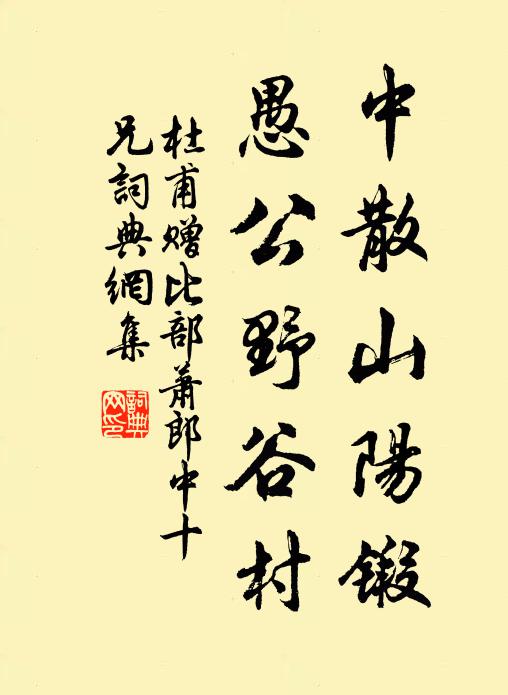 中散山陽鍛
愚公野谷村
杜甫贈比部蕭郎中十
兄詞典網集
詞典
网印